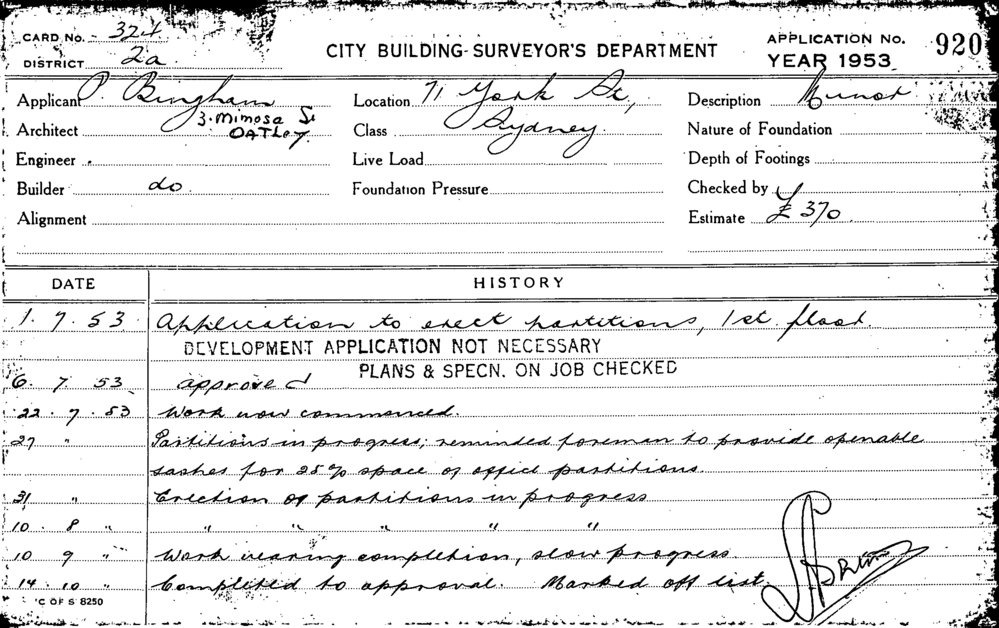 CARD No. 324
DISTRICT 2a
CITY BUILDING-SURVEYOR'S DEPARTMENT
APPLICATION No. 920
YEAR 1953
Applicant P. Bingham
3. Mimosa St
OATLEY
Architect
Engineer
Builder do
Alignment
Location 71 York St,
Sydney.
Class
Live Load
Foundation Pressure
Description Minor
Nature of Foundation
Depth of Footings
Checked by
Estimate £ 370
DATE HISTORY
1. 7. 53 Application to erect partitions, 1st floor.
DEVELOPMENT APPLICATION NOT NECESSARY
PLANS & SPECN. ON JOB CHECKED
6. 7 53 approved
22. 7. 53 Work now commenced.
27 " Partitions in progress; reminded foreman to provide openable
sashes for 25% space of office partitions.
31 " Erection of partitions in progress
10. 8 " " " " " "
10 9 " Work nearing completion, slow progress
14. 10 " Completed to approval. Marked off list.
C OF S 8250